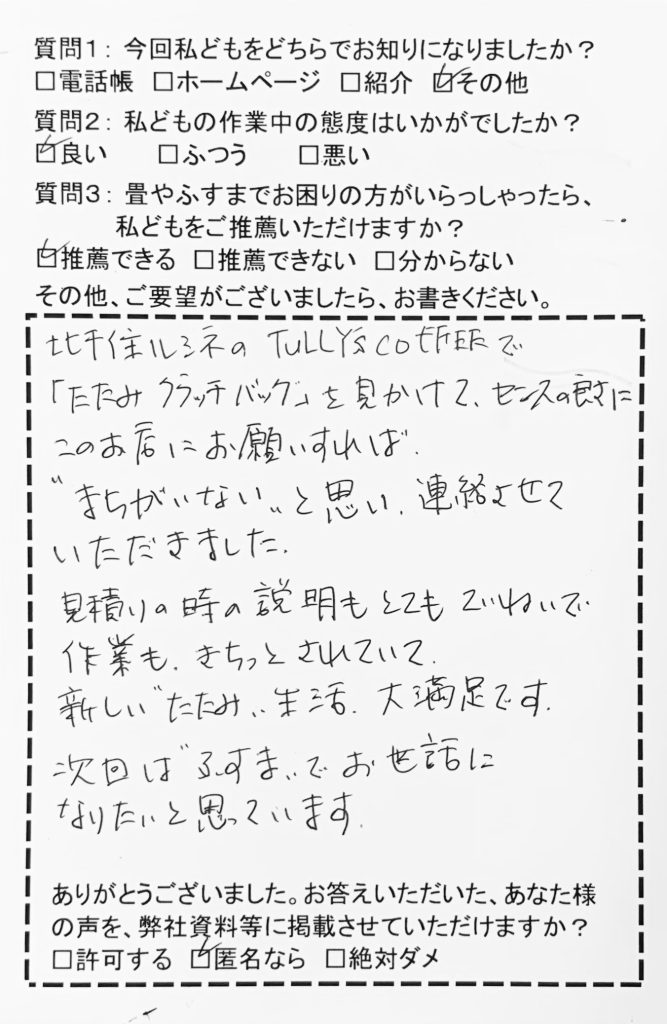 質問1：今回私どもをどちらでお知りになりましたか？
□電話帳 □ホームページ □紹介 ☑その他
質問2：私どもの作業中の態度はいかがでしたか？
☑良い □ふつう □悪い
質問3：畳やふすまでお困りの方がいらっしゃったら、
私どもをご推薦いただけますか？
☑推薦できる □推薦できない □分からない
その他、ご要望がございましたら、お書きください。
北千住ルミネの TULLY'S COFFEEで
「たたみ クラッチバッグ」を見かけて、センスの良さに
このお店にお願いすれば、
“まちがいない„と思い、連絡させて
いただきました。
見積りの時の説明もとてもていねいで
作業も、きちっとされていて、
新しい“たたみ„生活、大満足です。
次回は“ふすま„でお世話に
なりたいと思っています。
ありがとうございました。お答えいただいた、あなた様
の声を、弊社資料等に掲載させていただけますか？
□許可する ☑匿名なら □絶対ダメ